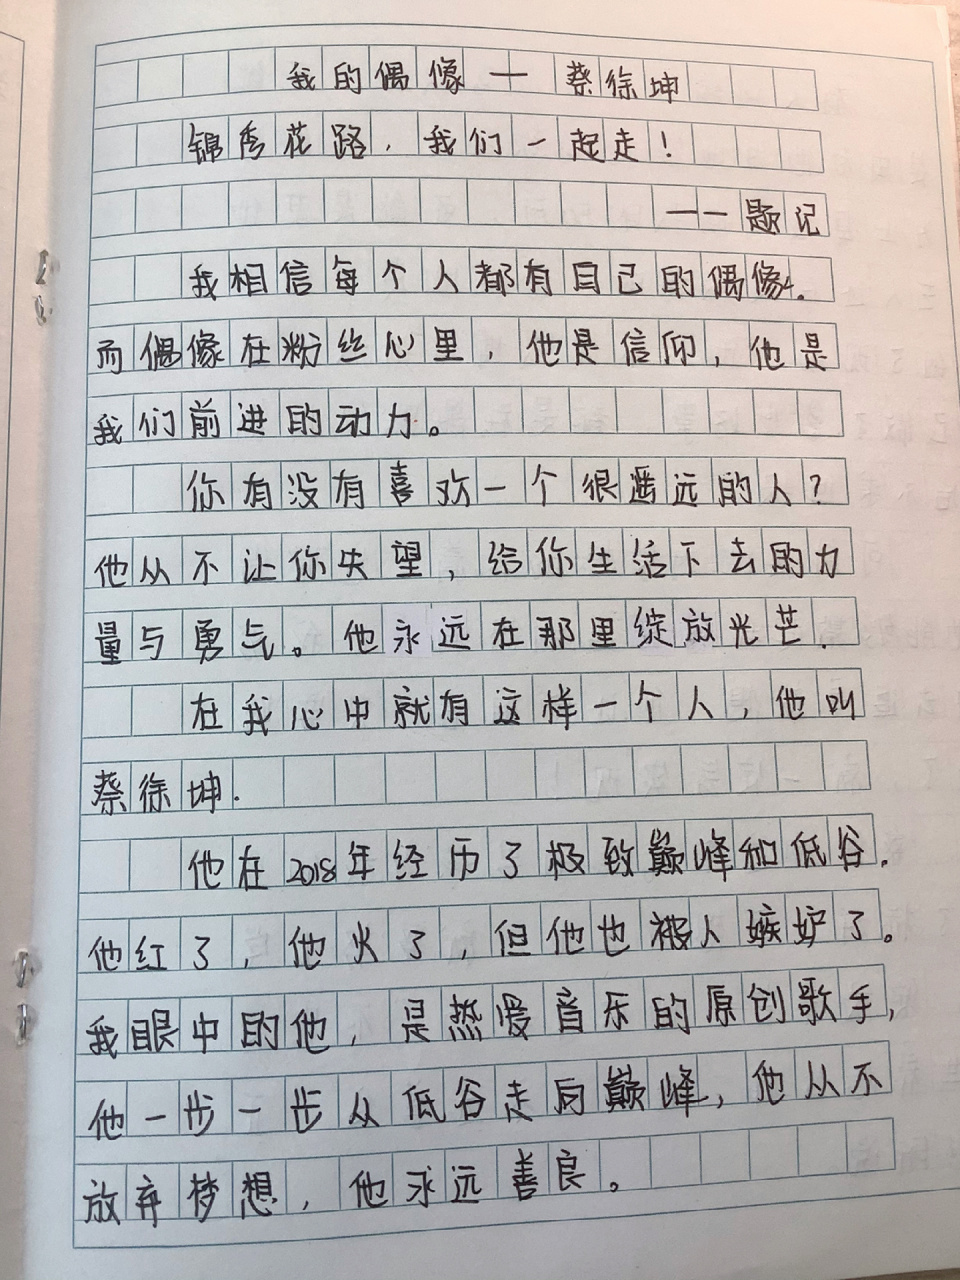 我的偶像一蔡徐坤
锦秀花路，我们一起走！
一一题记
我相信每个人都有自己的偶像。
而偶像在粉丝心里，他是信仰，他是
我们前进的动力。
你有没有喜欢一个很遥远的人？
他从不让你失望，给你生活下去的力
量与勇气。他永远在那里绽放光芒.
在我心中就有这样一个人，他叫
蔡徐坤.
他在2018年经历了极致巅峰和低谷.
他红了，他火了，但他也被人嫉妒了。
我眼中的他，是热爱音乐的原创歌手，
他一步一步从低谷走向巅峰，他从不
放弃梦想，他永远善良。